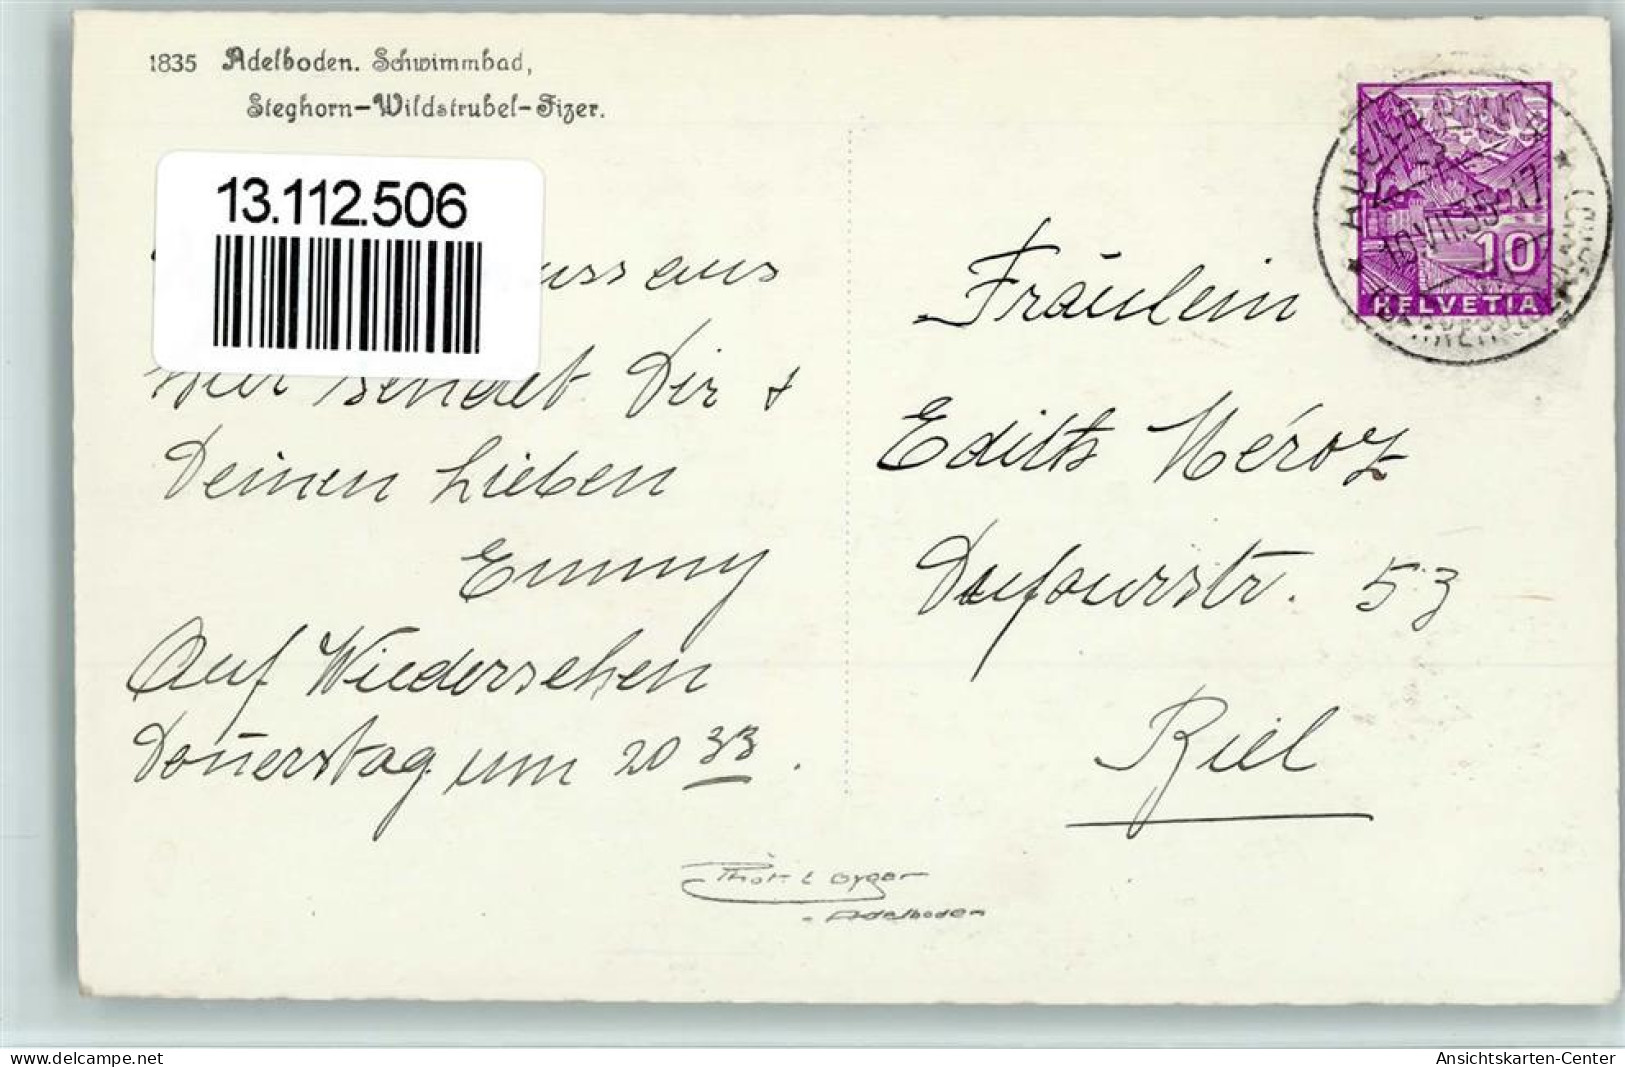 1835 Adelboden. Schwimmbad,
Steghorn-Wildstrubel-Fizer.
13.112.506
aus
hier sendet Dir +
Deinen Lieben
Emmy
Auf Wiedersehen
Donnerstag um 20 33.
Fräulein
Edith Méroz
Dufourstr. 53
Biel
10.VII.35-17
10
HELVETIA
Phot. Gyger
Adelboden
delcampe.net
Ansichtskarten-Center